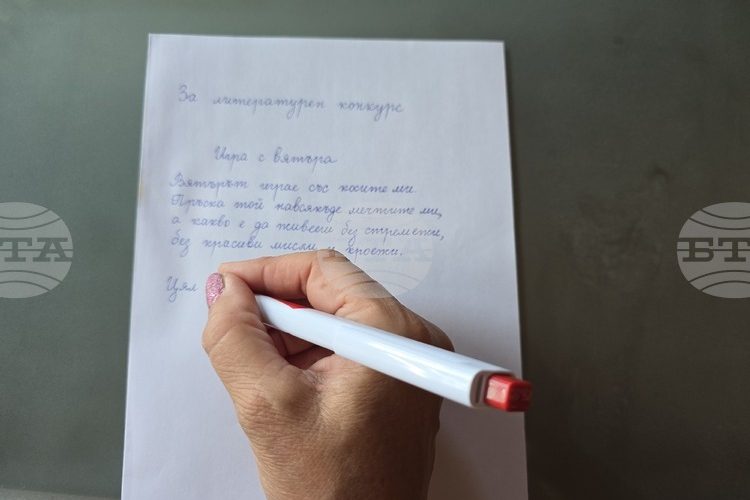 За литературен конкурс
Игра с вятъра
Вятърът играе със косите ми.
Пръска той навсякъде мечтите ми,
а какво е да живееш без стремежи,
без красиви мисли и кроежи.
Цял
БТА
БТА
БТА